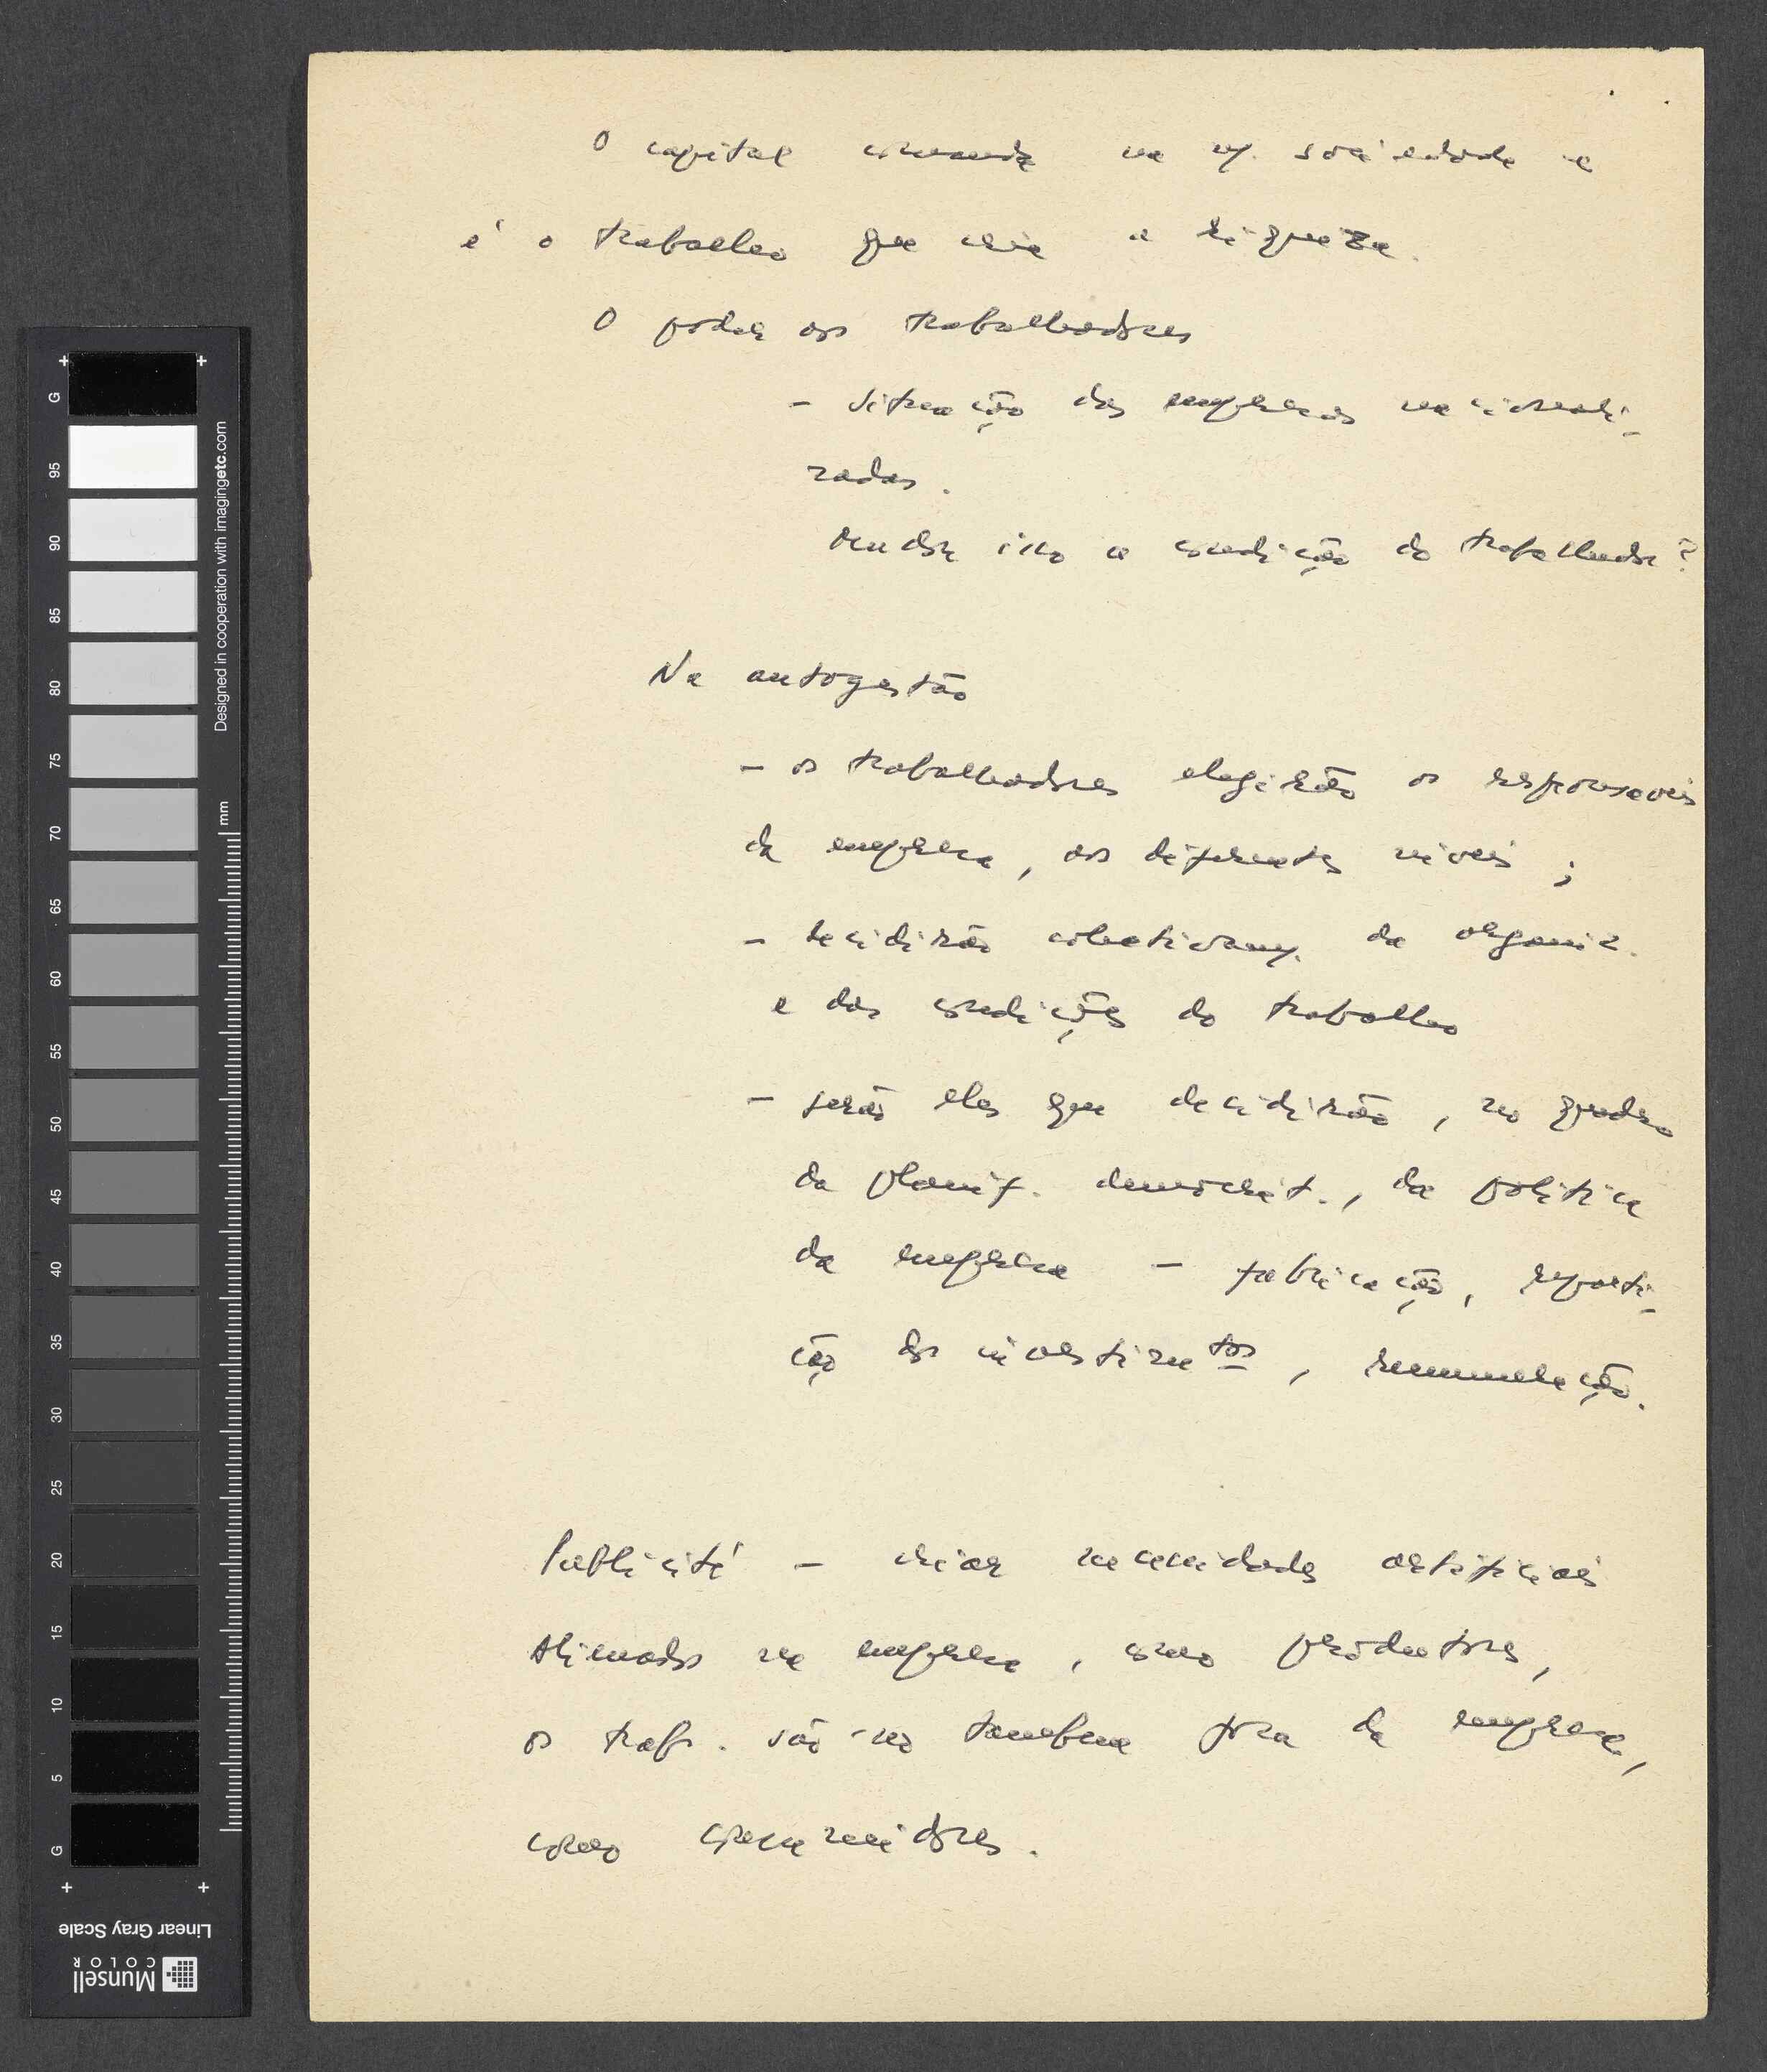 O capital comanda na n/ sociedade e
é o trabalho que cria a riqueza.
O poder aos trabalhadores
- situação das empresas nacionali-
zadas.
Mudou isso a condição do trabalhador?
Na autogestão
- os trabalhadores elegirão os responsáveis
da empresa, aos diferentes níveis;
- decidirão colectivam/. da organiz.
e das condições do trabalho
- serão eles que decidirão, no quadro
da planif. democrát., da política
da empresa - fabricação, reparti-
ção dos investimentos, remuneração.
Publicité - criar necessidades artificiais
Alienados na empresa, como produtores,
os trab. são-no também fora da empresa,
como consumidores.
Designed in cooperation with imagingetc.com
mm
G 95 90 85 80 75 70 65 60 55 50 45 40 35 30 25 20 15 10 5 G
Linear Gray Scale
Munsell
COLOR